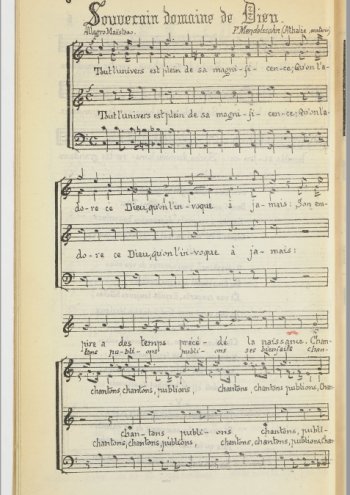 Souverain domaine de Dieu.
Allegro Maëstoso.
F. Mendelssohn (Athalie,
Tout l'univers est plein de sa magni-fi-cen-ce; Qu'on l'a-
Tout l'univers est plein de sa magni-fi-cen-ce; Qu'on l'a-
do-re ce Dieu, qu'on l'in-voque à ja-mais: Son em-
do-re ce Dieu, qu'on l'in-voque à ja-mais:
pire a des temps précé-dé la naissance. Chan-
tons publi-ons publi-ons ses bienfaits chan-
chantons, chantons, publions, chantons, chantons publions, Chan-
chan-tons publi-ons chantons, publi-
chantons, chantons, publions, chantons, chantons, publions, Chan